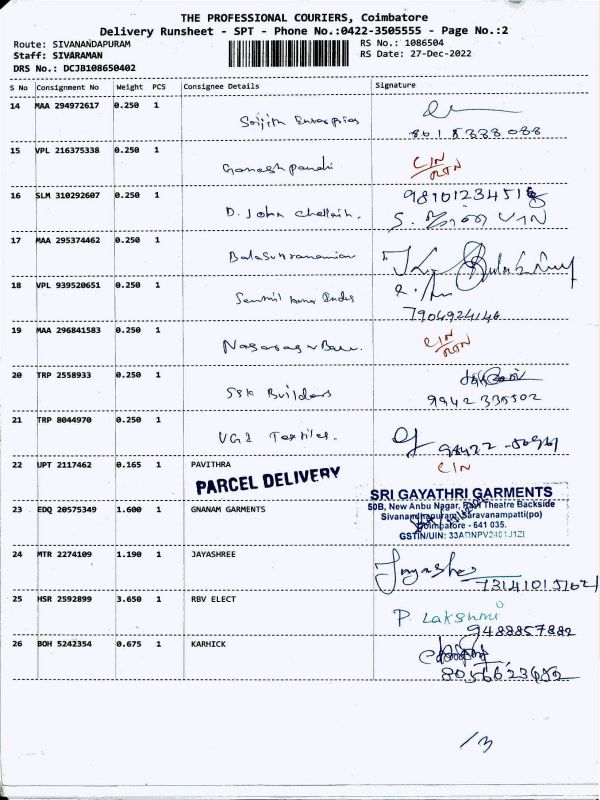 THE PROFESSIONAL COURIERS, Coimbatore
Delivery Runsheet - SPT - Phone No.:0422-3505555 - Page No.:2
Route: SIVANANDAPURAM RS No.: 1086504
Staff: SIVARAMAN RS Date: 27-Dec-2022
DRS No.: DCJB108650402
S No Consignment No Weight PCS Consignee Details Signature
14 MAA 294972617 0.250 1
Enterprises
15 VPL 216375338 0.250 1
Ganeshpandi C/N RTN
16 SLM 310292607 0.250 1
D. John Chelliah.
17 MAA 295374462 0.250 1
Balasubramanian
18 VPL 939520651 0.250 1
Senthil
7904924146
19 MAA 296841583 0.250 1
C/N RTN
20 TRP 2558933 0.250 1
SSK Builders 9942335502
21 TRP 8044970 0.250 1
VGI Textiles.
22 UPT 2117462 0.165 1 PAVITHRA C/N
PARCEL DELIVERY
SRI GAYATHRI GARMENTS
23 EDQ 20575349 1.600 1 GNANAM GARMENTS
50B, New Anbu Nagar, Theatre Backside
Sivanandhapuram, Saravanampatti(po)
Coimbatore - 641 035.
GSTIN/UIN:
24 MTR 2274109 1.190 1 JAYASHREE
Jayashree
25 HSR 2592899 3.650 1 RBV ELECT
P. Lakshmi
9488857882
26 BOH 5242354 0.675 1 KARHICK
/3